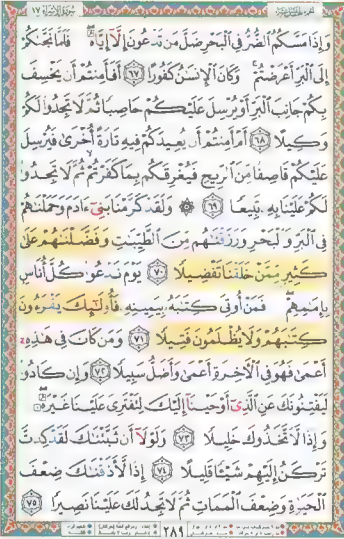 وَإِذَا مَسَّكُمُ ٱلضُّرُّ فِى ٱلْبَحْرِ ضَلَّ مَن تَدْعُونَ إِلَّآ إِيَّاهُ ۖ فَلَمَّا نَجَّىٰكُمْ
إِلَى ٱلْبَرِّ أَعْرَضْتُمْ ۚ وَكَانَ ٱلْإِنسَٰنُ كَفُورًا ٦٧ أَفَأَمِنتُمْ أَن يَخْسِفَ
بِكُمْ جَانِبَ ٱلْبَرِّ أَوْ يُرْسِلَ عَلَيْكُمْ حَاصِبًا ثُمَّ لَا تَجِدُوا۟ لَكُمْ
وَكِيلًا ٦٨ أَمْ أَمِنتُمْ أَن يُعِيدَكُمْ فِيهِ تَارَةً أُخْرَىٰ فَيُرْسِلَ
عَلَيْكُمْ قَاصِفًا مِّنَ ٱلرِّيحِ فَيُغْرِقَكُم بِمَا كَفَرْتُمْ ۙ ثُمَّ لَا تَجِدُوا۟
لَكُمْ عَلَيْنَا بِهِۦ تَبِيعًا ٦٩ ۞ وَلَقَدْ كَرَّمْنَا بَنِىٓ ءَادَمَ وَحَمَلْنَٰهُمْ
فِى ٱلْبَرِّ وَٱلْبَحْرِ وَرَزَقْنَٰهُم مِّنَ ٱلطَّيِّبَٰتِ وَفَضَّلْنَٰهُمْ عَلَىٰ
كَثِيرٍ مِّمَّنْ خَلَقْنَا تَفْضِيلًا ٧٠ يَوْمَ نَدْعُوا۟ كُلَّ أُنَاسٍۭ
بِإِمَٰمِهِمْ ۖ فَمَنْ أُوتِىَ كِتَٰبَهُۥ بِيَمِينِهِۦ فَأُو۟لَٰٓئِكَ يَقْرَءُونَ
كِتَٰبَهُمْ وَلَا يُظْلَمُونَ فَتِيلًا ٧١ وَمَن كَانَ فِى هَٰذِهِۦٓ
أَعْمَىٰ فَهُوَ فِى ٱلْءَاخِرَةِ أَعْمَىٰ وَأَضَلُّ سَبِيلًا ٧٢ وَإِن كَادُوا۟
لَيَفْتِنُونَكَ عَنِ ٱلَّذِىٓ أَوْحَيْنَآ إِلَيْكَ لِتَفْتَرِىَ عَلَيْنَا غَيْرَهُۥ ۖ
وَإِذًا لَّٱتَّخَذُوكَ خَلِيلًا ٧٣ وَلَوْلَآ أَن ثَبَّتْنَٰكَ لَقَدْ كِدتَّ
تَرْكَنُ إِلَيْهِمْ شَيْـًٔا قَلِيلًا ٧٤ إِذًا لَّأَذَقْنَٰكَ ضِعْفَ
ٱلْحَيَوٰةِ وَضِعْفَ ٱلْمَمَاتِ ثُمَّ لَا تَجِدُ لَكَ عَلَيْنَا نَصِيرًا ٧٥
٢٨٩